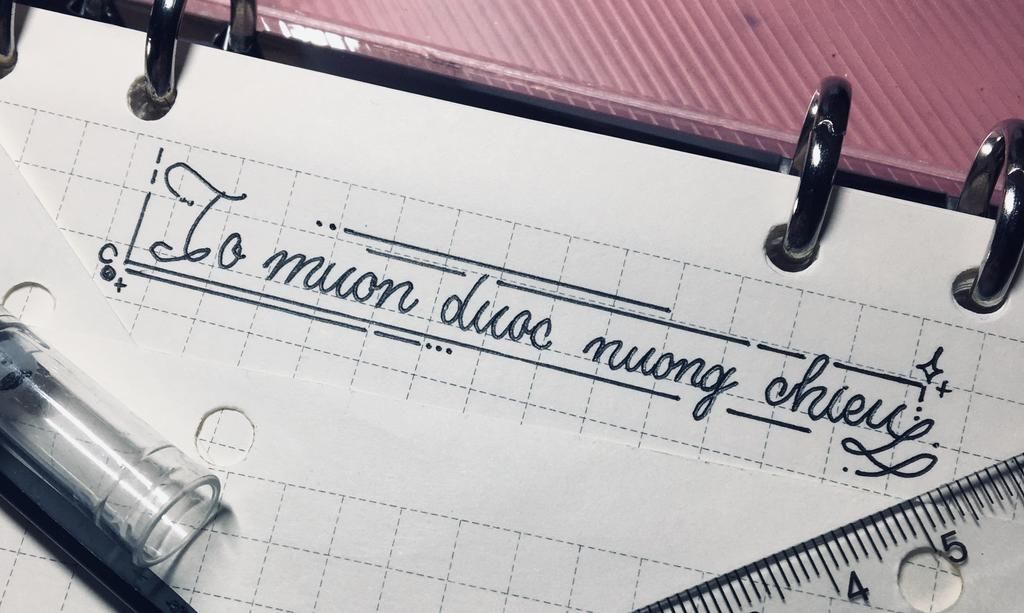 To muon duoc nuong chieu
4 5